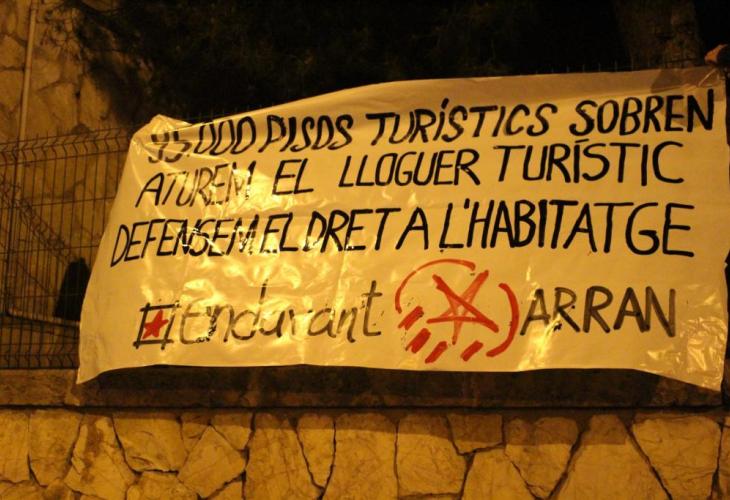 95.000 PISOS TURÍSTICS SOBREN
ATUREM EL LLOGUER TURÍSTIC
DEFENSEM EL DRET A L'HABITATGE
Endavant ARRAN